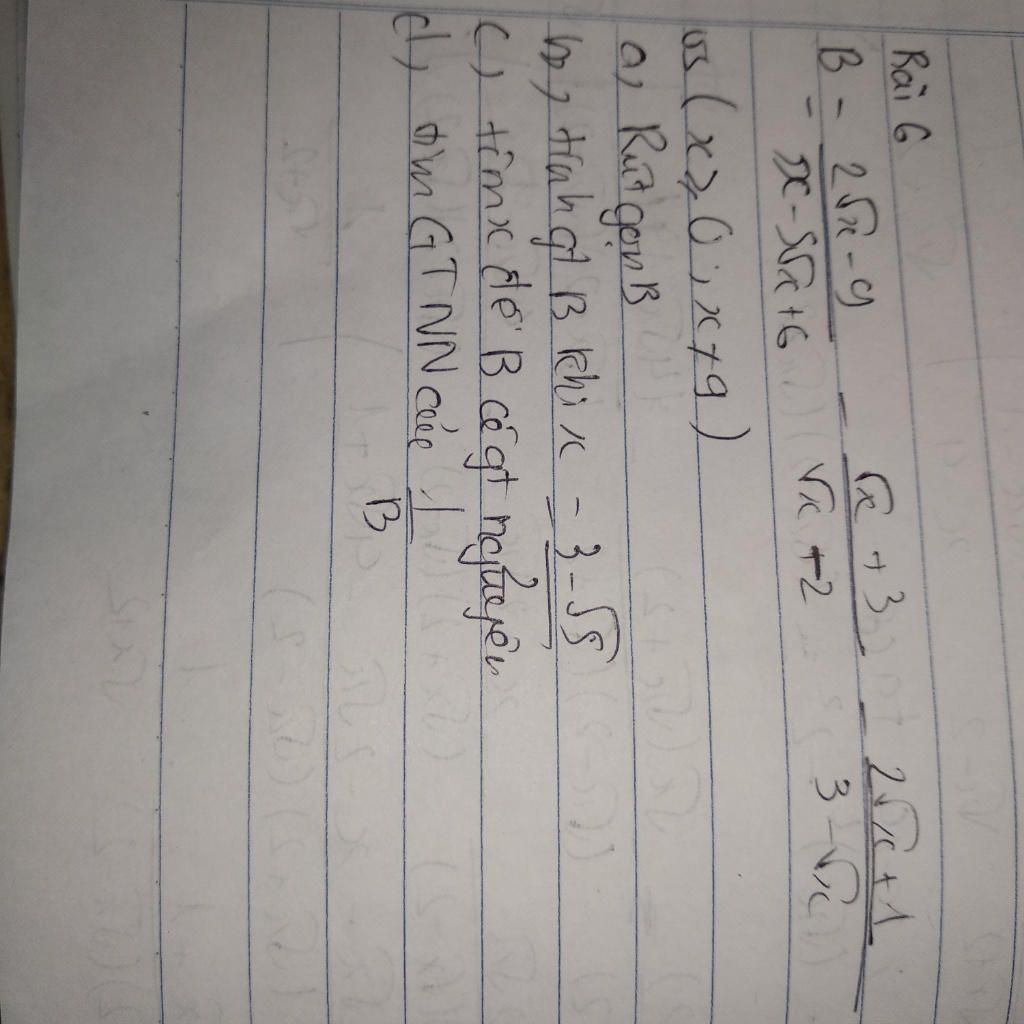 Bài 6
B = \frac{2\sqrt{x} - 9}{x - 5\sqrt{x} + 6} - \frac{\sqrt{x} + 3}{\sqrt{x} + 2} - \frac{2\sqrt{x} + 1}{3 - \sqrt{x}}
vs (x ≥ 0; x ≠ 9)
a, Rút gọn B
b, tính gt B khi x = \frac{3 - \sqrt{5}}{}
c, tìm x để B có gt nguyên
d, tìm GTNN của \frac{1}{B}